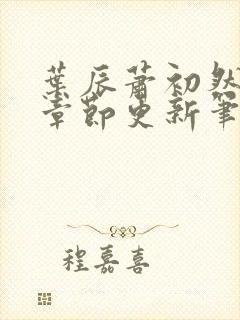 葉辰蕭初然
章節更新筆
程嘉喜